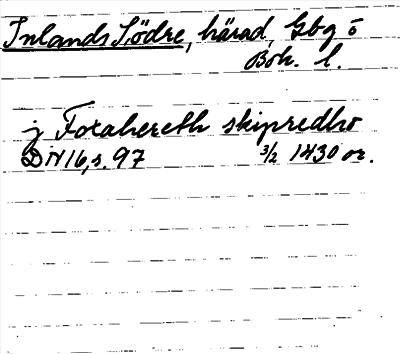 Inlands Södre, härad, Gbg o
Boh. l.
j Foxahereth skipredho
DN 16, s. 97 3/2 1430 or.